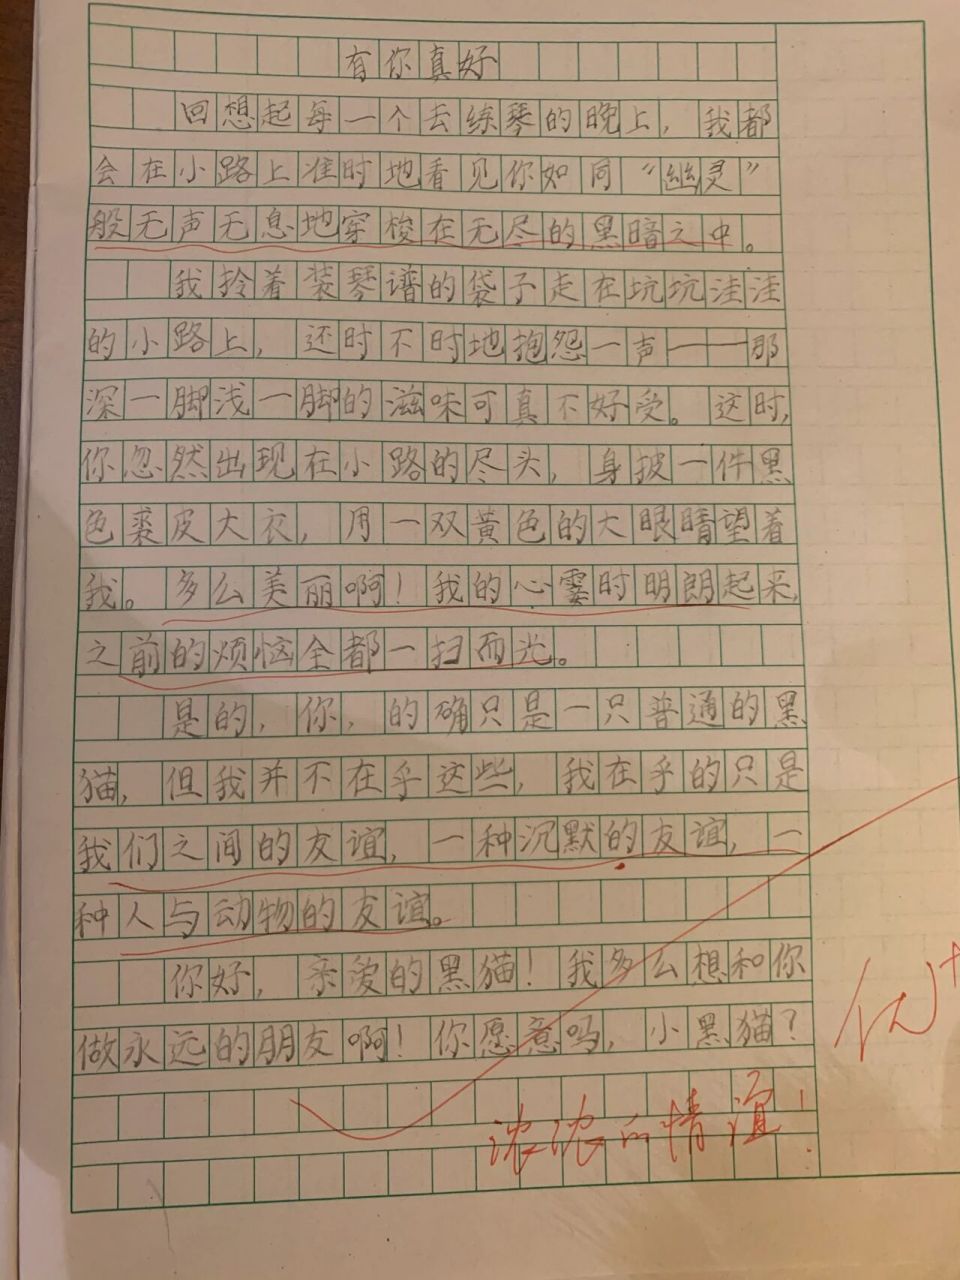 有你真好
回想起每一个去练琴的晚上，我都
会在小路上准时地看见你如同“幽灵”
般无声无息地穿梭在无尽的黑暗之中。
我拎着装琴谱的袋子走在坑坑洼洼
的小路上，还时不时地抱怨一声——那
深一脚浅一脚的滋味可真不好受。这时，
你忽然出现在小路的尽头，身披一件黑
色裘皮大衣，用一双黄色的大眼睛望着
我。多么美丽啊！我的心霎时明朗起来，
之前的烦恼全都一扫而光。
是的，你，的确只是一只普通的黑
猫，但我并不在乎这些，我在乎的只是
我们之间的友谊，一种沉默的友谊，一
种人与动物的友谊。
你好，亲爱的黑猫！我多么想和你
做永远的朋友啊！你愿意吗，小黑猫？
优+
浓浓的情谊！